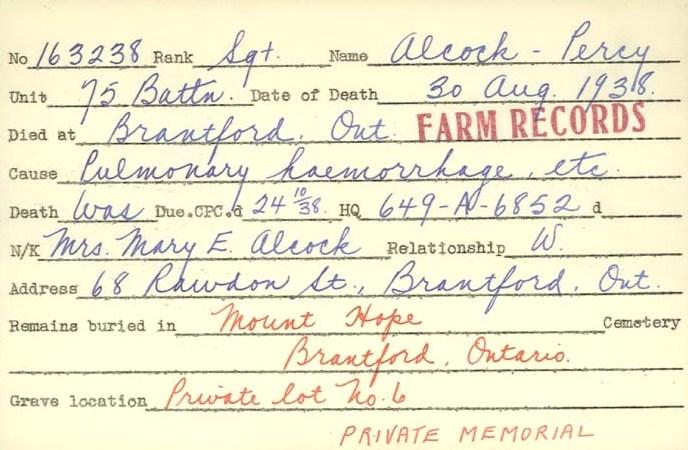 No 163238 Rank Sgt. Name Alcock - Percy
Unit 75 Battn. Date of Death 30 Aug. 1938.
Died at Brantford, Ont. FARM RECORDS
Cause Pulmonary haemorrhage, etc.
Death Was Due.CPC.d 24 10/38. HQ 649-A-6852 d
N/K Mrs. Mary E. Alcock Relationship W.
Address 68 Rawdon St., Brantford, Ont.
Remains buried in Mount Hope Cemetery
Brantford, Ontario.
Grave location Private lot No. 6
PRIVATE MEMORIAL